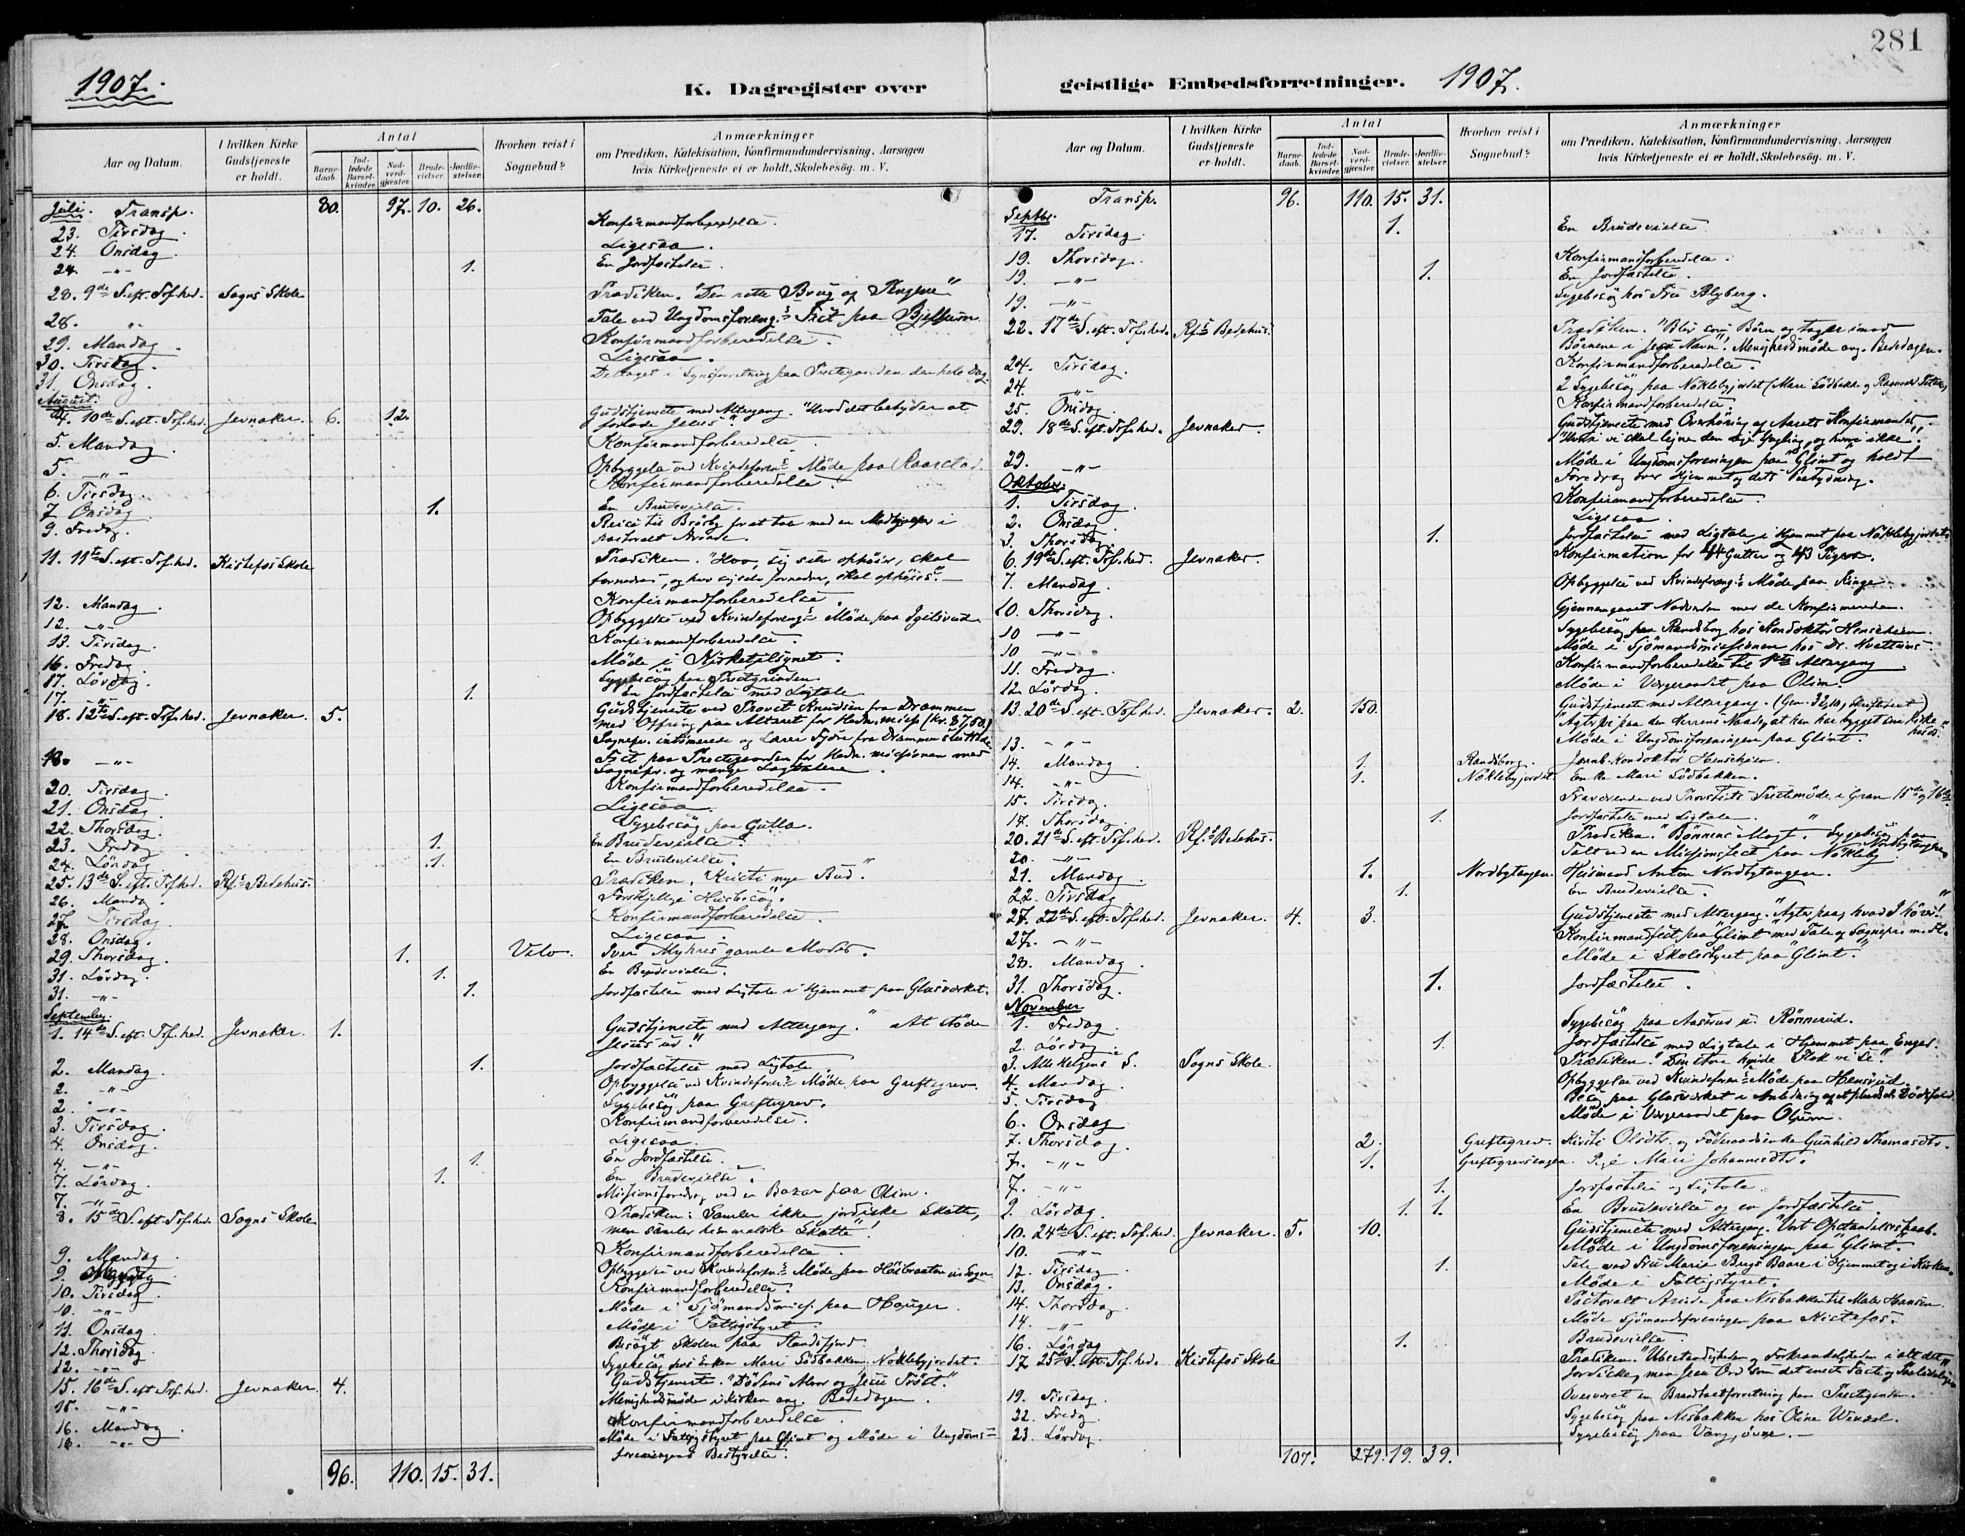 281
1907.
K. Dagregister over
geistlige Embedsforretninger. 1907.
Aar og Datum.
I hvilken Kirke Gudstjeneste er holdt.
Antal
Barnedaab.
Indledede Barselkvinder.
Nadverdgjester.
Brudevielser.
Jordfæstelser.
Hvorhen reist i Sognebud?
Anmærkninger
om Prædiken, Katekisation, Konfirmandundervisning, Aarsagen
hvis Kirketjeneste ei er holdt, Skolebesög. m. V.
Juli. Transp. 80. 97. 10. 26.
23. Tirsdag. Konfirmandforberedelse.
24. Onsdag. Ligesaa.
24. -"- 1. En Jordfæstelse.
28. 9de S. eft. Tref.hed. Sogns Skole
28. "
29. Mandag. Konfirmandforberedelse.
30. Tirsdag. Ligesaa.
31. Onsdag.
August.
4. 10de S. eft. Tref.hed. Jevnaker. 6. 12. Gudstjeneste med Altergang. "Hvad det betyder at
forlade Jesus".
5. Mandag. Konfirmandforberedelse.
5. -"- Opbyggelse ved Kvindeforens Møde paa
6. Tirsdag. Konfirmandforberedelse.
7. Onsdag. 1. En Brudevielse.
9. Fredag.
11. 11te S. eft. Tref.hed. Kistefos Skole Prædiken. "Hvo, sig selv ophøier, skal
fornedres, og hvo sig selv fornedrer, skal ophøies".
12. Mandag. Konfirmandforberedelse.
12. -"- Opbyggelse ved Kvindeforengs Møde paa
13. Tirsdag. Konfirmandforberedelse.
16. Fredag. Møde i Kirketilsynet.
17. Lördag. Sygebesög paa
17. -"- 1. En Jordfæstelse med Ligtale
18. 12te S. eft. Tref.hed. Jevnaker. 5. Gudstjeneste ved Provst Knudsen fra Drammen
med Offring paa Alteret for Hedn. miss. (kr. 87,50.)
18. -"- Fest paa Præstegaarden for Hedn. missionen med
Sognepr. og mange
20. Tirsdag. Konfirmandforberedelse.
21. Onsdag. Ligesaa.
22. Thorsdag. Sygebesög paa Gulla.
23. Fredag 1. En Brudevielse.
24. Lördag 1. En Brudevielse.
25. 13de S. eft. Tref.hed. Rfs Bedehus. Prædiken. "Kristi nye Bud."
26. Mandag. Forskjellige Husbesög.
27. Tirsdag. Konfirmandforberedelse.
28. Onsdag. Ligesaa.
29. Thorsdag. 1. Velo. Iver Myhres gamle Moder.
31. Lördag. 1. En Brudevielse.
31. -"- 1. Jordfæstelse med Ligtale i Hjemmet paa Glasverket.
September.
1. 14de S. eft. Tref.hed. Jevnaker. 1. Gudstjeneste med Altergang. "At støde
Jesus ud."
2. Mandag. 1. Jordfæstelse med Ligtale.
2. -"- Opbyggelse ved Kvindeforens Møde paa Greftegrev.
2. -"- Sygebesög paa Greftegrev.
3. Tirsdag. Konfirmandforberedelse.
4. Onsdag. Ligesaa.
4. -"- 1. En Jordfæstelse.
7. Lördag. 1. En Brudevielse.
7. -"- Missionsforedrag ved en Bazar paa Olim.
8. 15de S. eft. Tref.hed. Sogns Skole Prædiken: Samler ikke jordiske Skatte,
men samler himmelske Skatte"!
9. Mandag. Konfirmandforberedelse.
9. Opbyggelse ved Kvindeforens Møde paa Høibraaten
10. Tirsdag Konfirmandforberedelse.
10. -"- Møde i Sjömandsmis. paa Houger.
11. Onsdag Møde i Fattigstyret.
12. Thorsdag Besögt Skolen paa
12. -"- Sygebesög hos Enken Mari Södbakken. Nöklebyjordet.
15. 16de S. eft. Tref.hed. Jevnaker. 4. Gudstjeneste. "Dødens Alvor og Jesu Trøst."
15. -"- Menighedsmøde i Kirken ang. Bededagen.
16. Mandag. Konfirmandforberedelse.
16. -"- Møde i Fattigstyret paa Glimt og Møde i Ungdoms-
foreningens Bestyrelse.
96. 110. 15. 31.
Aar og Datum.
I hvilken Kirke Gudstjeneste er holdt.
Antal
Barnedaab.
Indledede Barselkvinder.
Nadverdgjester.
Brudevielser.
Jordfæstelser.
Hvorhen reist i Sognebud?
Anmærkninger
om Prædiken, Katekisation, Konfirmandundervisning, Aarsagen
hvis Kirketjeneste ei er holdt, Skolebesög. m. V.
Transp. 96. 110. 15. 31.
Septbr.
17. Tirsdag. 1. En Brudevielse
19. Thorsdag. Konfirmandforberedelse.
19. -"- 1. En Jordfæstelse.
19. -"- Sygebesög hos Fru Blyberg.
22. 17de S. eft. Tref.hed. Rfs Bedehus. Prædiken. "Bliv som Børn og tager imod
Børnene i Jesu Navn". Menighedsmøde ang. Bededagen.
24. Tirsdag. Konfirmandforberedelse.
24. -"- 2 Sygebesög paa Nöklebyjordet
25. Onsdag. Konfirmandforberedelse.
29. 18de S. eft. Tref.hed. Jevnaker. Gudstjeneste med Overhöring af Aarets Konfirmander.
29. -"- Møde i Ungdomsforeningen paa "Glimt og holdt
Foredrag over Hjemmet og dets Betydning.
Oktober.
1. Tirsdag. Konfirmandforberedelse
2. Onsdag Ligesaa.
3. Thorsdag. 1. Jordfæstelse med Ligtale i Hjemmet paa Nöklebyjordet
6. 19de S. eft. Tref.hed. Jevnaker. Konfirmation for 44 Gutter og 43 Piger.
7. Mandag. Opbyggelse ved Kvindeforengs Møde paa
10. Thorsdag. Gjennemgaaet Nadverden med de Konfirmerede.
10 -"- Sygebesög paa Randsborg hos Konduktör Henschien.
10 -"- Møde i Sjömandsmissionen hos Dr.
11. Fredag. Konfirmandforberedelse til 1ste Altergang
12. Lördag. Møde i Vergeraadet paa Olim.
13. 20de S. eft. Tref.hed. Jevnaker. 2. 150. Gudstjeneste med Altergang.
13. -"- Møde i Ungdomsforeningen paa Glimt.
14. Mandag 1. Randsborg. Jernb. Konduktör Henschien.
14. -"- 1. Nöklebyjordet Enke Mari Södbakken.
15. Tirsdag. Fraværende ved Provstiets Præstemøde i Gran 15de og 16de
17. Thorsdag. 1. Jordfæstelse med Ligtale.
20. 21de S. eft. Tref.hed. Rfs Bedehus. Prædiken. "Bønnens Magt". Sygebesög paa Nordbytangen
20. -"- Talt ved en Missionsfest paa Nökleby.
21. Mandag 1. Nordbytangen. Husmand Anton Nordbytangen.
22. Tirsdag 1. En Brudevielse.
27. 22de S. eft. Tref.hed. Jevnaker. 4. 3. Gudstjeneste med Altergang. "Agter paa, hvad I hører."
27. -"- Konfirmandfest paa "Glimt" med Tale af Sognepr. m. fl.
28. Mandag Møde i Skolestyret paa "Glimt."
31. Thorsdag. 1. Jordfæstelse.
November
1. Fredag. Sygebesög paa Aastrud u. Rønnerud.
2. Lördag. 1. Jordfæstelse med Ligtale i Hjemmet paa Enger.
3. Alle Helgens S. Sogns Skole. Prædiken. "Den store hvide Flok vi se."
4. Mandag. Opbyggelse ved Kvindeforens Møde paa Hensrud.
5. Tirsdag. Besög paa Glasverket i Anledning af et pludseligt Dødsfald.
6. Onsdag Møde i Vergeraadet paa Olum.
7. Thorsdag. 2. Greftegrev. Kirsti Olsdtr. og Föderaadsenke Gunhild Thomasdtr.
7. -"- 1. Greftegrevseiegen. Pige Mari Johannesdtr.
7. -"- 1. Jordfæstelse og Ligtale.
9. Lördag. 1. 1. En Brudevielse og en Jordfæstelse.
10. 24de S. eft. Tref.hed. Jevnaker. 5. 10. Gudstjeneste med Altergang. "Vort Opstandelseshaab."
10. -"- Møde i Ungdomsforeningen paa "Glimt."
12. Tirsdag 1. Tale ved Fru Marie Bergs Baare i Hjemmet og i Kirken.
13. Onsdag. Møde i Fattigstyret.
14. Thorsdag. Pastoralt Ærinde paa Nesbakken til Maler Hansen.
14. -"- Møde Sjömandsforeningen paa Kistefos.
16. Lördag 1. Brudevielse.
17 25de S. eft. Tref.hed. Kistefos Skole
19. Tirsdag. Overværet en Branntaxtforretning paa Præstegaarden.
22. Fredag Sygebesög paa Nesbakken hos Oline Wensel.
23. Lördag. Sygebesög paa
107. 279. 19. 39.